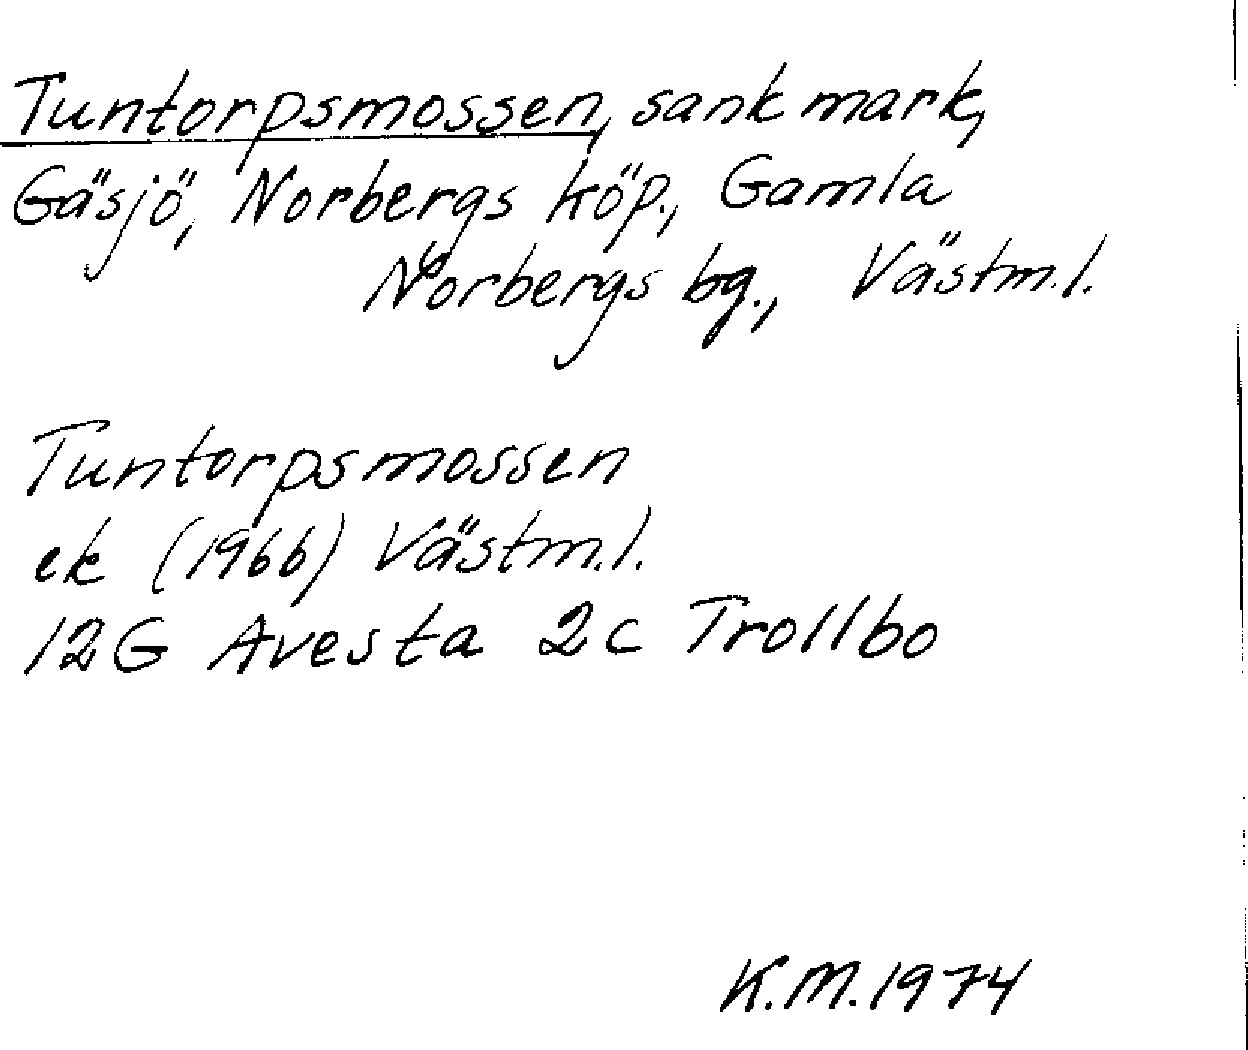 Tuntorpsmossen, sank mark,
Gäsjö, Norbergs köp., Gamla
Norbergs bg., Västm.l.
Tuntorpsmossen
ek (1966) Västm.l.
12G Avesta 2c Trollbo
K.M. 1974